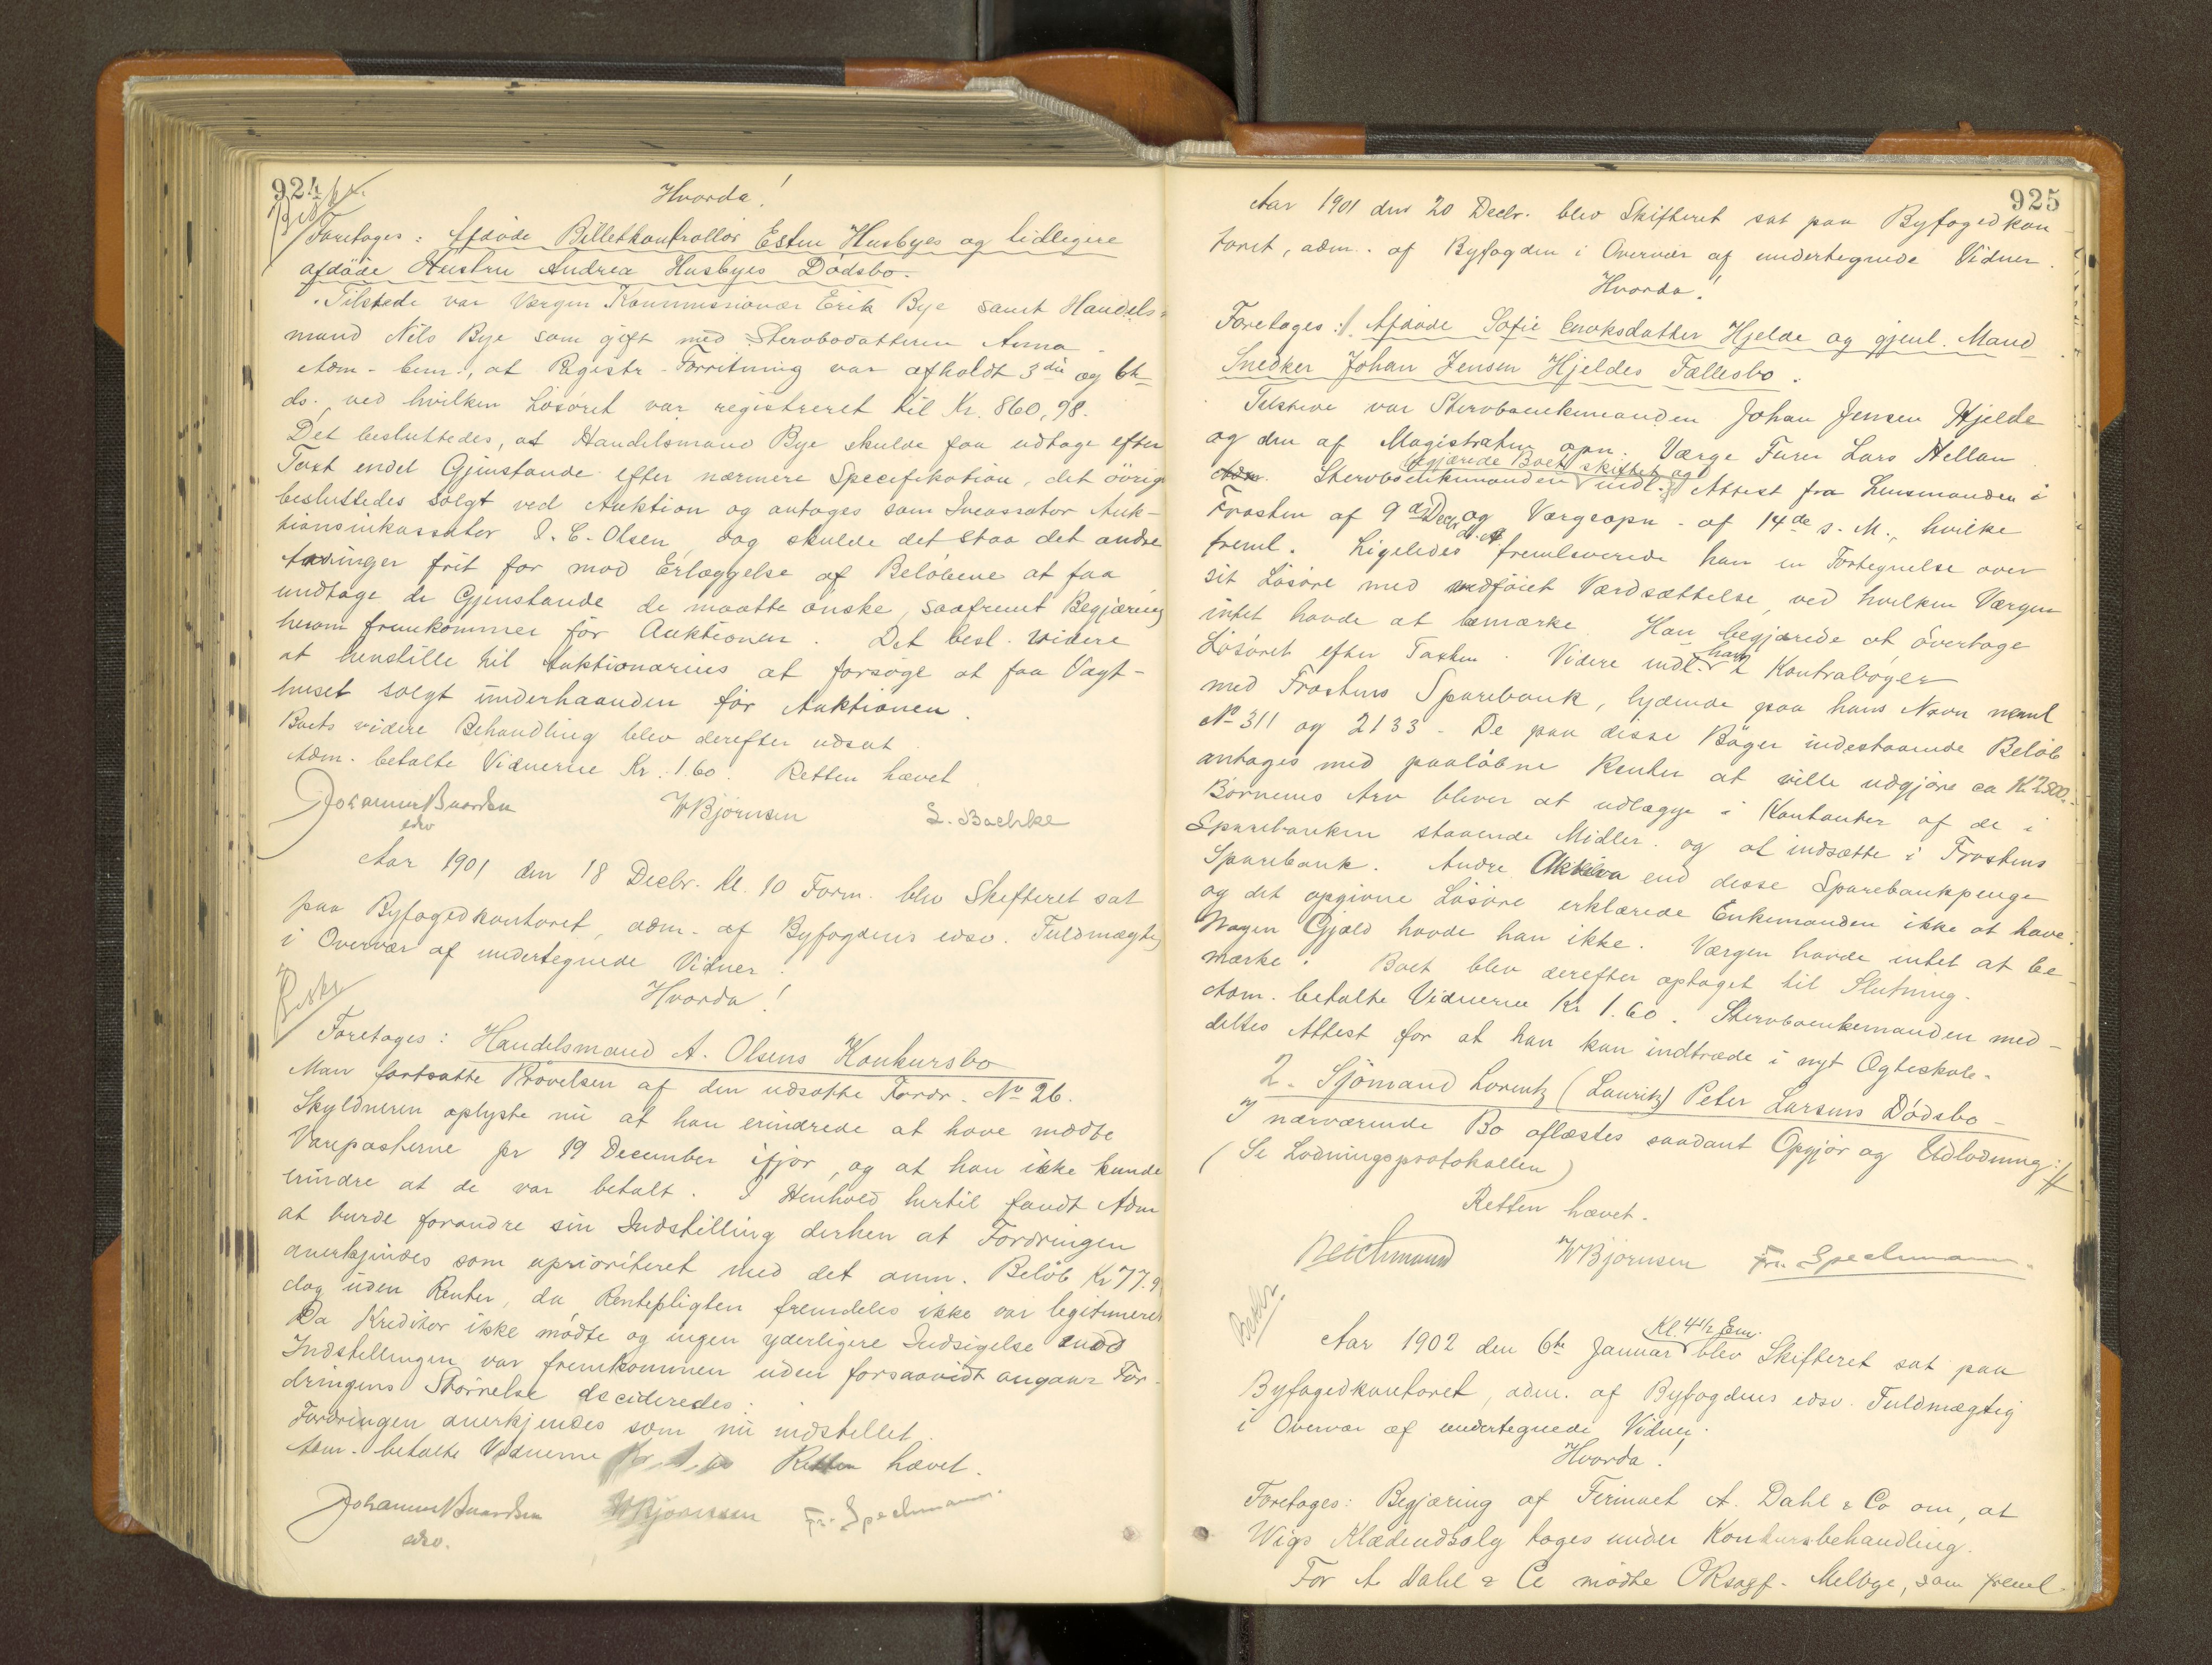 924
Beskr.
Hvorda!
Foretages: Afdöde Billetkontrollör Esten Husbyes og tidligere
afdöde Hustru Andrea Husbyes Dödsbo.
Tilstede var Værgen Kommissionær Erik Bye samt Handels-
mand Nils Bye som gift med Stervbodatteren Anna
Adm. bem., at Registr. Forretning var afholdt 3die og 6te
ds. ved hvilken Lösöret var registreret til Kr. 860,98.
Det besluttedes, at Handelsmand Bye skulde faa udtage efter
Taxt endel Gjenstande efter nærmere Specifikation, det övrige
besluttedes solgt ved Auktion og antages som Incassator Auk-
tionsinkassator I. C. Olsen, dog skulde det staa det andre
Arvinger frit for mod Erlæggelse af Belöbene at faa
undtage de Gjenstande de maatte önske, saafremt Begjæring
herom fremkommer för Auktionen. Det besl. videre
at henstille til Auktionarius at forsöge at faa Vagt-
huset solgt underhaanden för Auktionen.
Boets videre Behandling blev derefter udsat
Adm. betalte Vidnerne Kr. 1.60. Retten hævet
Johannes Baardsen
edsv
W Bjørnsen
L. Bachke
Aar 1901 den 18 Decbr. Kl. 10 Form. blev Skifteret sat
paa Byfogedkontoret, adm. af Byfogdens edsv. Fuldmægtig
i Overvær af undertegnede Vidner.
Beskr.
Hvorda!
Foretages: Handelsmand A. Olsens Konkursbo
Man fortsatte Prövelsen af den udsatte Fordr. No 26.
Skyldneren oplyste nu at han erindrede at have mödte
Vareposterne pr 19 December ifjor, og at han ikke kunde
erindre at de var betalt. I Henhold hertil fandt Adm
at burde forandre sin Indstilling derhen at Fordringen
anerkjendes som uprioriteret med det anm. Belöb Kr 77.9
dog uden Renter, da Rentepligten fremdeles ikke var legitimeret
Da Kreditor ikke mödte og ingen yderligere Indsigelse mod
Indstillingen var fremkommen uden forsaavidt angaar For-
dringens Störrelse decideredes:
Fordringen anerkjendes som nu indstillet.
Adm. betalte Vidnerne Kr. 1.60 Retten hævet.
Johannes Baardsen
edsv.
W Bjørnsen
Fr. Speckmann.
925
Aar 1901 den 20 Decbr. blev Skifteret sat paa Byfogedkon-
toret, adm. af Byfogden i Overvær af undertegnede Vidner.
Hvorda!
Foretages: 1. Afdöde Sofie Enoksdatter Hjelde og gjenl. Mand
Snedker Johan Jensen Hjeldes Fællesbo.
Tilstede var Stervboenkemanden Johan Jensen Hjelde
og den af Magistraten opn. Værge Furer Lars Hellan
begjærede Boet skiftet og
Adm. Stervboenkemanden indl. Attest fra Lensmanden i
Frosten af 9de Decbr. d. A. og Værgeopn. af 14de s. M., hvilke
freml. Ligeledes fremleverede han en Fortegnelse over
sit Lösöre med vedföiet Værdsættelse, ved hvilken Værgen
intet havde at bemærke. Han begjærede at overtage
Lösöret efter Taxten. Videre indl. han 2 Kontraböger
med Frostens Sparebank, lydende paa hans Navn neml
No 311 og 2133. De paa disse Böger indestaaende Belöb
antages med paalöbne Renter at ville udgjöre ca Kr 2500.-
Börnenes Arv bliver at udlægge i Kontanter af de i
Sparebanken staaende Midler og at indsætte i Frostens
Sparebank. Andre Aktiva end disse Sparebankpenge
og det opgivne Lösöre erklærede Enkemanden ikke at have.
Nogen Gjæld havde han ikke. Værgen havde intet at be-
mærke. Boet blev derefter optaget til Slutning.
Adm. betalte Vidnerne Kr 1.60. Stervboenkemanden med-
deltes Attest for at han kan indtræde i nyt Ægteskab.
2. Sjömand Lorentz (Lauritz) Peter Larsens Dödsbo-
I nærværende Bo oflæstes saadant Opgjör og Udlodning:
(Se Lodningsprotokollen)
Retten hævet.
Reichmand
W Bjørnsen
Fr. Speckmann.
Beskr.
Kl. 4 1/2 Em.
Aar 1902 den 6te Januar blev Skifteret sat paa
Byfogedkontoret, adm. af Byfogdens edsv. Fuldmægtig
i Overvær af undertegnede Vidner.
Hvorda!
Foretages: Begjæring af Firmaet A. Dahl & Co om, at
Wigs Klædeudsalg tages under Konkursbehandling.
For A Dahl & Co mödte ORsagf. Melbye, som freml.